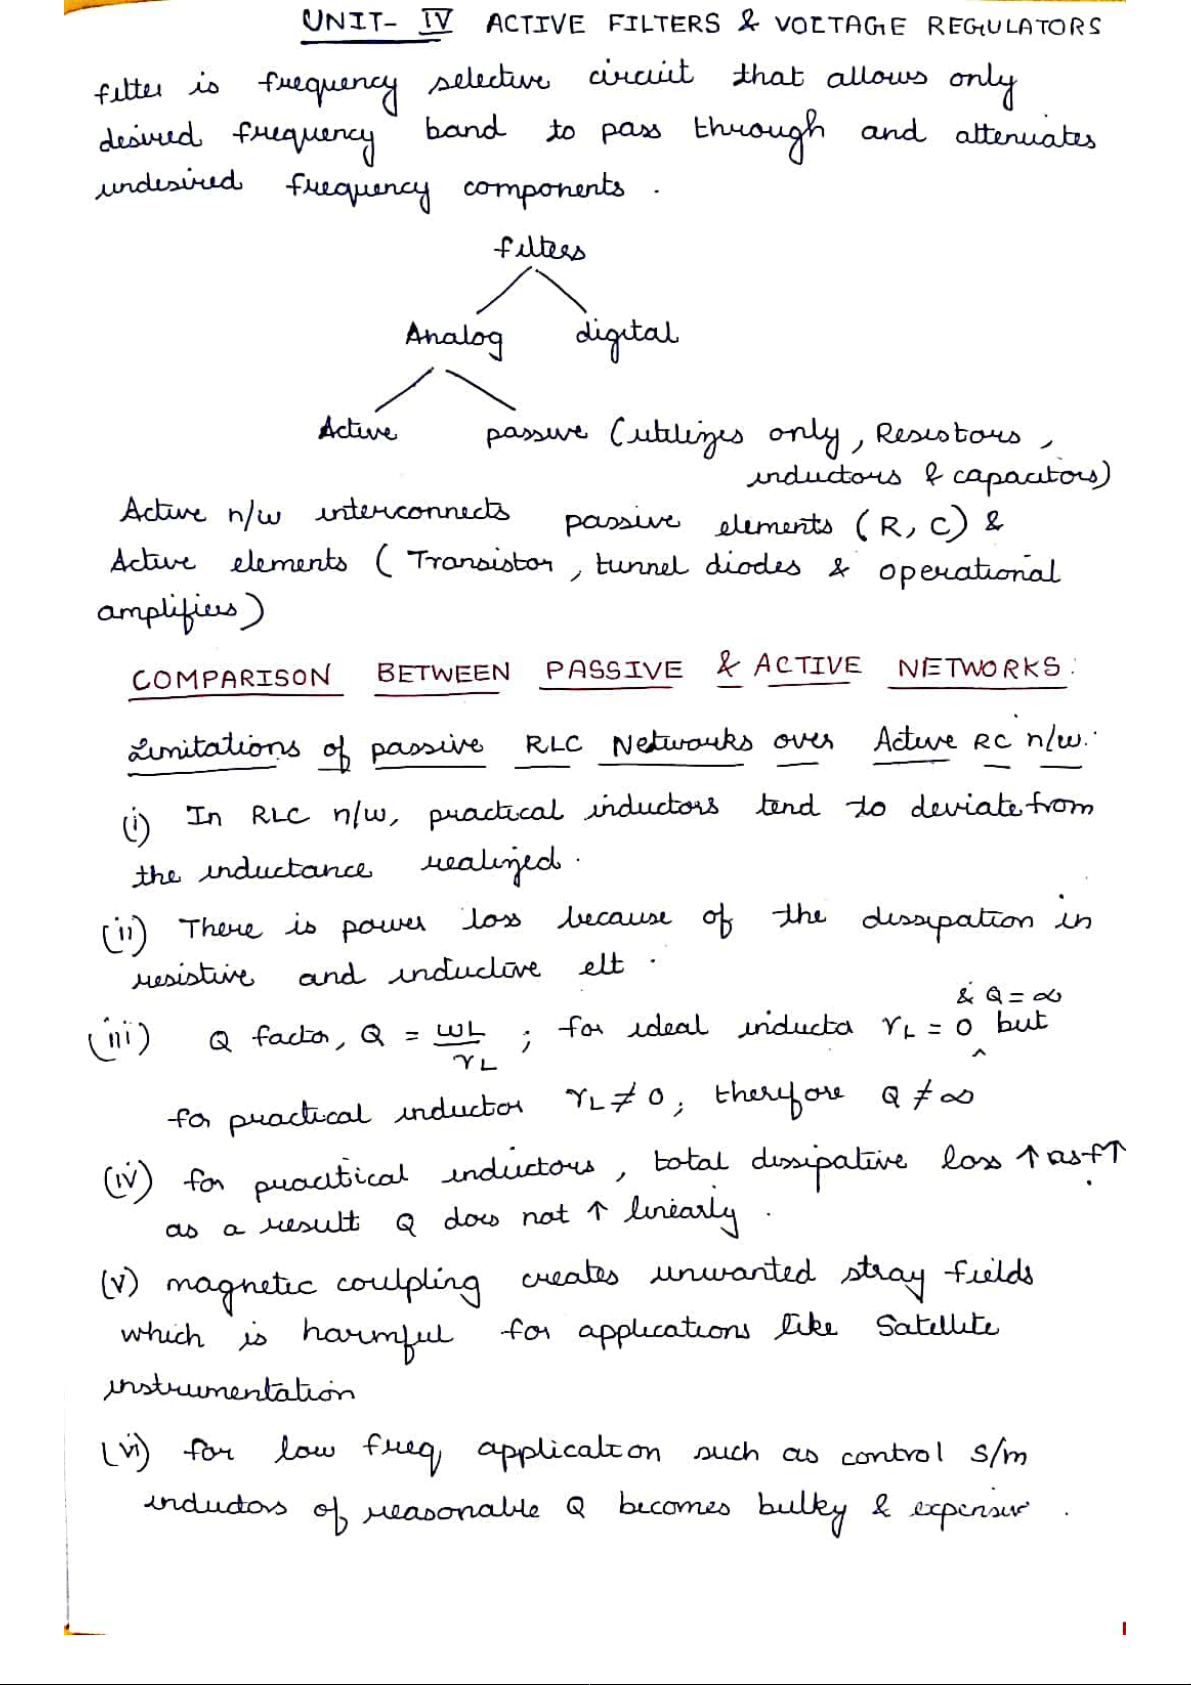 UNIT- IV ACTIVE FILTERS & VOLTAGE REGULATORS
filter is frequency selective circuit that allows only
desired frequency band to pass through and attenuates
undesired frequency components .
filters
Analog digital
Active passive (utilizes only, Resistors,
inductors & capacitors)
Active n/w interconnects passive elements (R, C) &
Active elements ( Transistor, tunnel diodes & operational
amplifiers)
COMPARISON BETWEEN PASSIVE & ACTIVE NETWORKS:
Limitations of passive RLC Networks over Active RC n/w:
(i) In RLC n/w, practical inductors tend to deviate from
the inductance realized.
(ii) There is power loss because of the dissipation in
resistive and inductive elt .
& Q = ∞
(iii) Q factor, Q = ωL/rL ; for ideal inductor rL = 0 ^ but
for practical inductor rL ≠ 0; therefore Q ≠ ∞
(iv) for practical inductors, total dissipative loss ↑ as f↑
as a result Q does not ↑ linearly .
(v) magnetic coulpling creates unwanted stray fields
which is harmful for applications like Satellite
instrumentation
(vi) for low freq, application such as control s/m
inductors of reasonable Q becomes bulky & expensive .